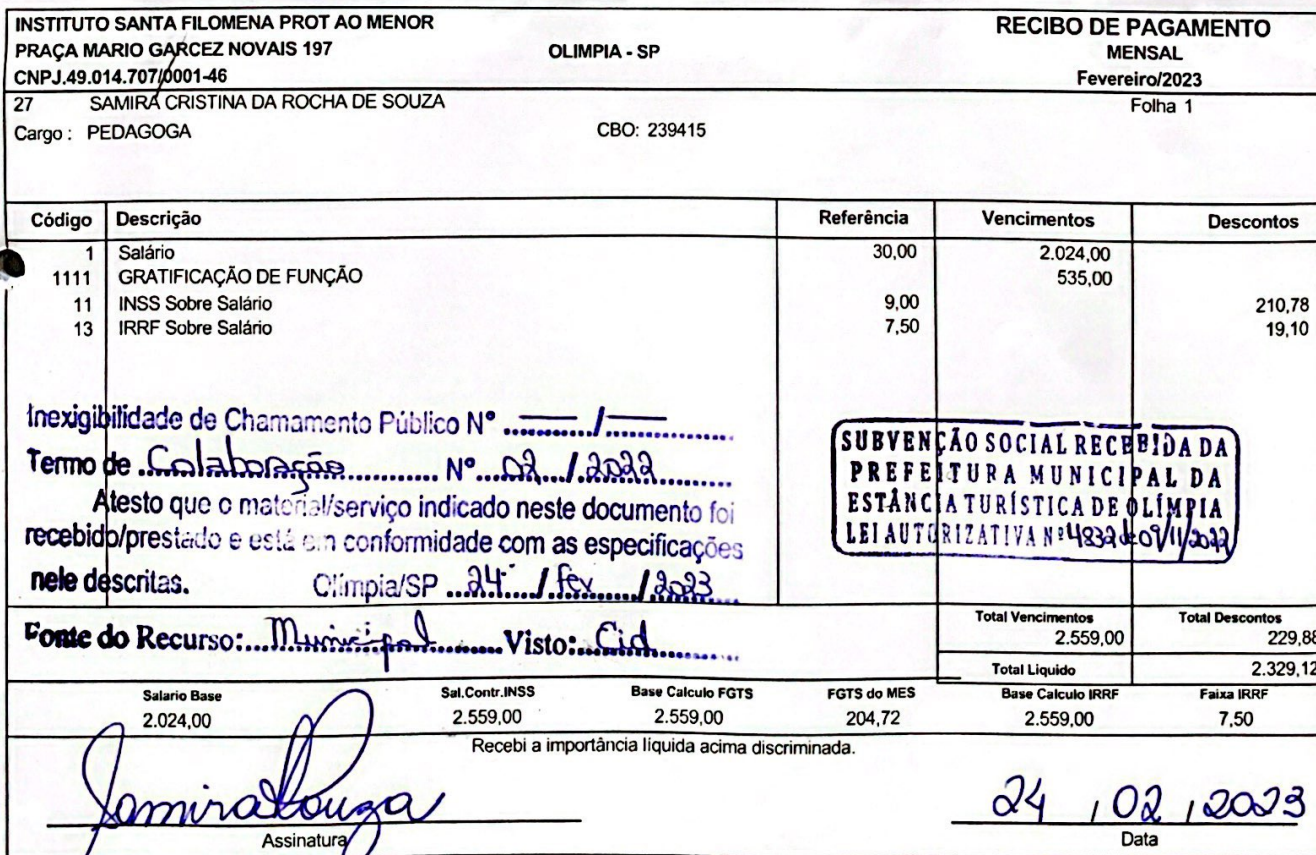 INSTITUTO SANTA FILOMENA PROT AO MENOR
PRAÇA MARIO GARCEZ NOVAIS 197
CNPJ.49.014.707/0001-46
OLIMPIA - SP
RECIBO DE PAGAMENTO
MENSAL
Fevereiro/2023
Folha 1
27 SAMIRA CRISTINA DA ROCHA DE SOUZA
Cargo : PEDAGOGA CBO: 239415
Código Descrição Referência Vencimentos Descontos
1 Salário 30,00 2.024,00
1111 GRATIFICAÇÃO DE FUNÇÃO 535,00
11 INSS Sobre Salário 9,00 210,78
13 IRRF Sobre Salário 7,50 19,10
Inexigibilidade de Chamamento Público Nº — / —
Termo de Colaboração Nº 02 / 2022
Atesto que o material/serviço indicado neste documento foi
recebido/prestado e está em conformidade com as especificações
nele descritas. Olímpia/SP 24 / fev / 2023
SUBVENÇÃO SOCIAL RECEBIDA DA
PREFEITURA MUNICIPAL DA
ESTÂNCIA TURÍSTICA DE OLÍMPIA
LEI AUTORIZATIVA Nº 4832 de 09/11/2022
Fonte do Recurso: Municipal Visto: Cid
Total Vencimentos Total Descontos
2.559,00 229,88
Total Liquido 2.329,12
Salario Base Sal.Contr.INSS Base Calculo FGTS FGTS do MES Base Calculo IRRF Faixa IRRF
2.024,00 2.559,00 2.559,00 204,72 2.559,00 7,50
Recebi a importância líquida acima discriminada.
Samira Souza 24 / 02 / 2023
Assinatura Data